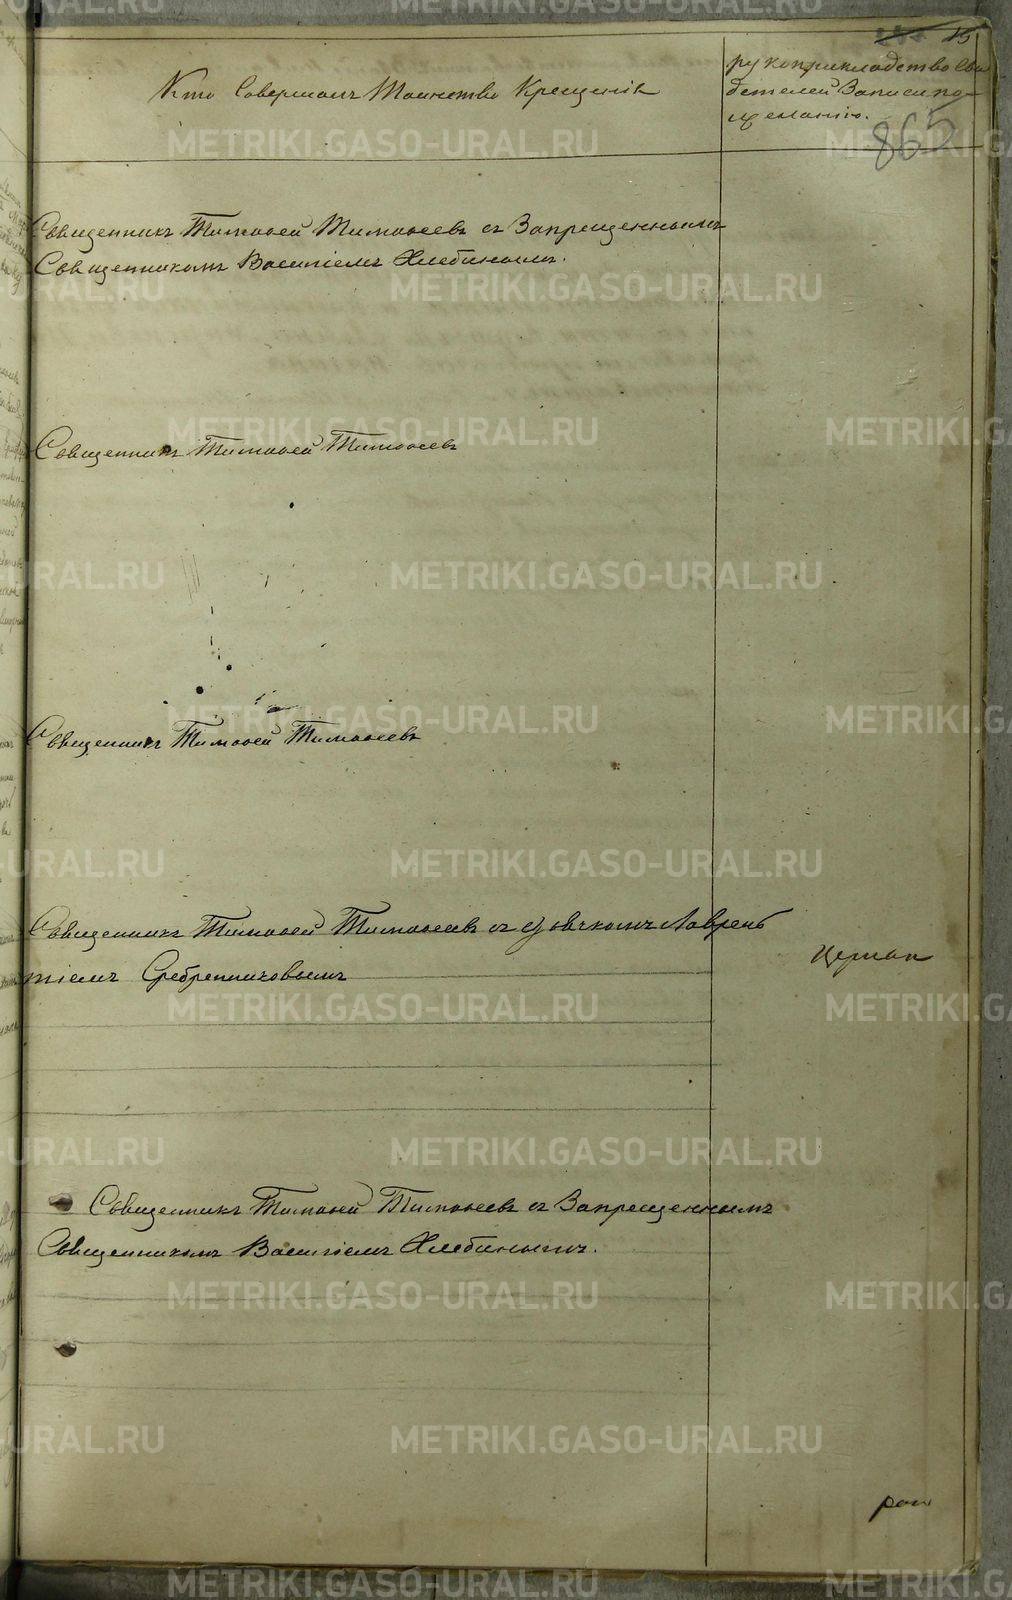 15
Кто Совершалъ Таинство Крещенія
рукоприкладство Сви
детелей Записи по
желанію.
865
Священникъ Тимофей Тимофеевъ съ Запрещеннымъ
Священникомъ Василіемъ Хлебинымъ.
Священникъ Тимофей Тимофеевъ
Священникъ Тимофей Тимофеевъ
Священникъ Тимофей Тимофеевъ съ дьячкомъ Лаврен
тіемъ Сребрениковымъ
Священникъ Тимофей Тимофеевъ съ Запрещеннымъ
Священникомъ Василіемъ Хлебинымъ.
METRIKI.GASO-URAL.RU